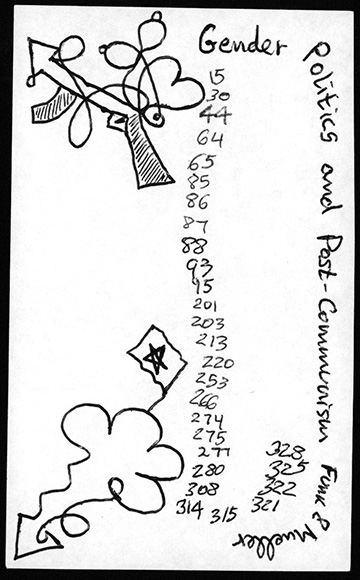 Gender
Politics and Post-Communism Funk & Mueller
15
30
44
64
65
85
86
87
88
93
95
201
203
213
220
253
266
274
275
277
280
308
314 315
321
322
325
328